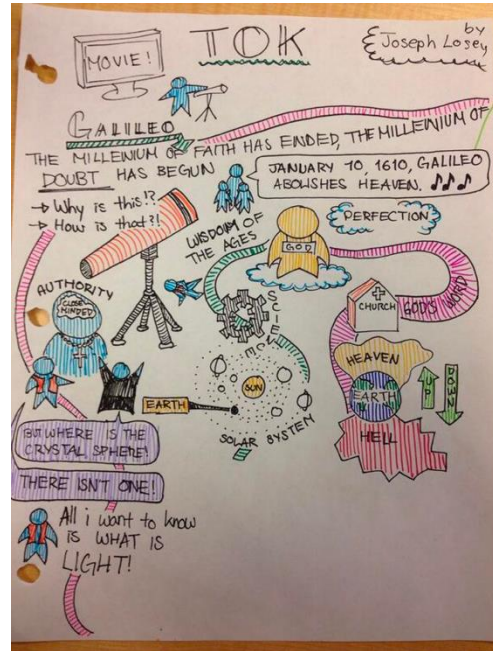 MOVIE!
TOK
by
Joseph Losey
GALILEO
THE MILLENIUM OF FAITH HAS ENDED, THE MILLENIUM OF
DOUBT HAS BEGUN
JANUARY 10, 1610, GALILEO
ABOLISHES HEAVEN.
→ Why is this!?
→ How is that?!
WISDOM OF
THE AGES
GOD
PERFECTION
AUTHORITY
CLOSE
MINDED
SCIENCE
CHURCH
GOD'S WORD
HEAVEN
EARTH
UP
DOWN
HELL
EARTH
SUN
SOLAR SYSTEM
BUT WHERE IS THE
CRYSTAL SPHERE!
THERE ISN'T ONE!
All i want to know
is WHAT IS
LIGHT!